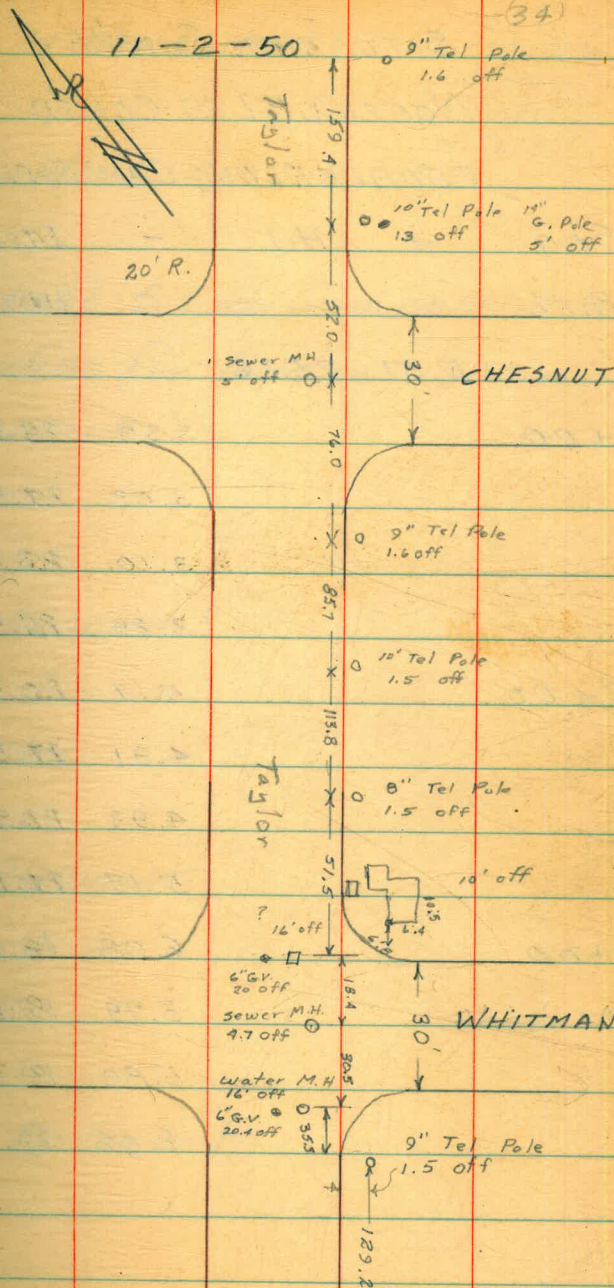 (34)
11-2-50
9" Tel Pole
1.6 off
Taylor
159.4
10" Tel Pole
1.3 off
14"
G. Pole
5' off
20' R.
52.0
Sewer M.H
5' off
30'
CHESNUT
76.0
9" Tel Pole
1.6 off
85.1
10" Tel Pole
1.5 off
113.8
Taylor
8" Tel Pole
1.5 off
51.5
10' off
10.5
6.4
?
16' off
6" G.V.
20 off
18.4
Sewer M.H.
4.7 off
30'
WHITMAN
30.5
Water M.H
16' off
6" G.V.
20.4 off
35.5
9" Tel Pole
1.5 off
129.2